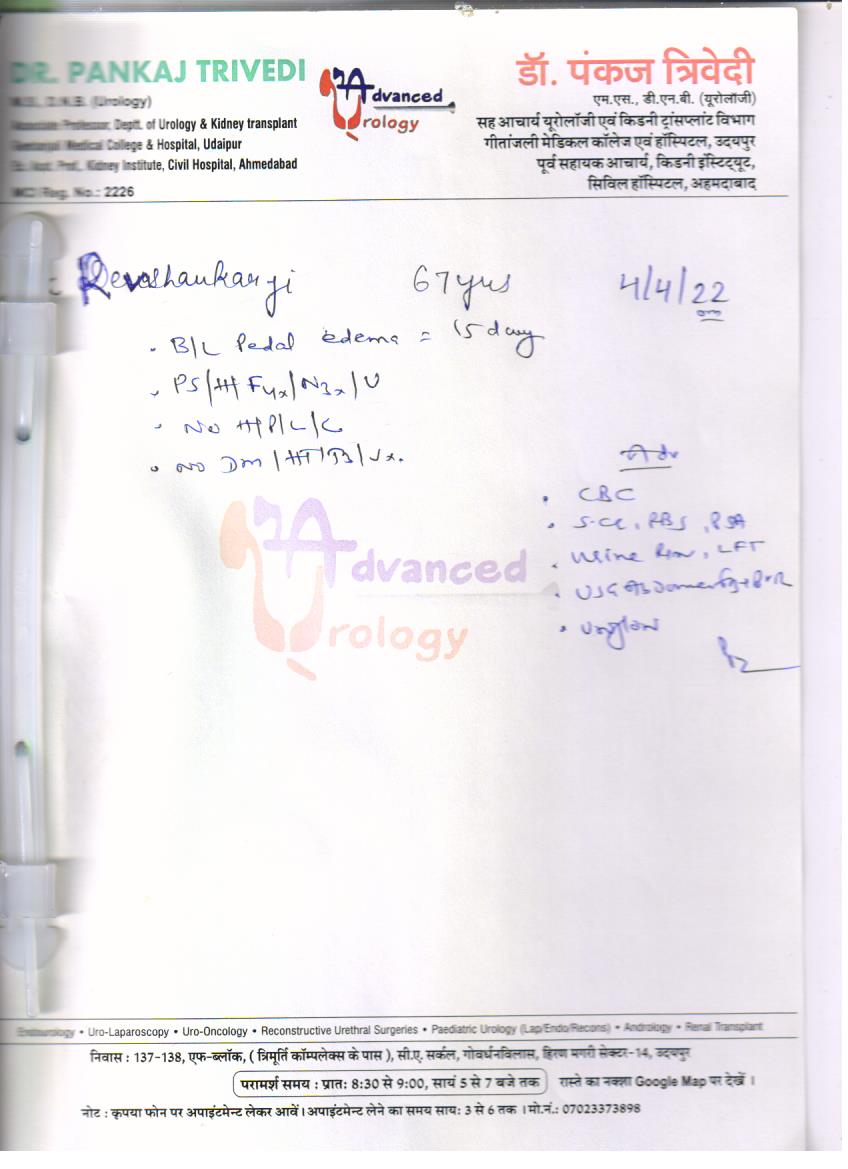 DR. PANKAJ TRIVEDI
M.S., D.N.B. (Urology)
Associate Professor, Deptt. of Urology & Kidney transplant
Geetanjali Medical College & Hospital, Udaipur
Ex. Asst. Prof., Kidney Institute, Civil Hospital, Ahmedabad
MCI Reg. No.: 2226
Advanced
Urology
डॉ. पंकज त्रिवेदी
एम.एस., डी.एन.बी. (यूरोलॉजी)
सह आचार्य यूरोलॉजी एवं किडनी ट्रांसप्लांट विभाग
गीतांजली मेडिकल कॉलेज एवं हॉस्पिटल, उदयपुर
पूर्व सहायक आचार्य, किडनी इंस्टिट्यूट,
सिविल हॉस्पिटल, अहमदाबाद
Revashankar ji 67 yrs 4/4/22
• B/L Pedal edema = 15 day
• PS/H/F4x/N3x/U
• No H/P/L/C
• NO Dm/HT/TB/Jx.
Adv
• CBC
• S.Cr, RBS, PSA
• Urine R/m, LFT
• USG
Advanced
Urology
Endourology • Uro-Laparoscopy • Uro-Oncology • Reconstructive Urethral Surgeries • Paediatric Urology (Lap/Endo/Recons) • Andrology • Renal Transplant
निवास : 137-138, एफ-ब्लॉक, ( त्रिमूर्ति कॉम्पलेक्स के पास ), सी.ए. सर्कल, गोवर्धनविलास, हिरण मगरी सेक्टर-14, उदयपुर
परामर्श समय : प्रातः 8:30 से 9:00, सायं 5 से 7 बजे तक रास्ते का नक्शा Google Map पर देखें ।
नोट : कृपया फोन पर अपाइंटमेन्ट लेकर आवें । अपाइंटमेन्ट लेने का समय सायः 3 से 6 तक । मो.नं.: 07023373898